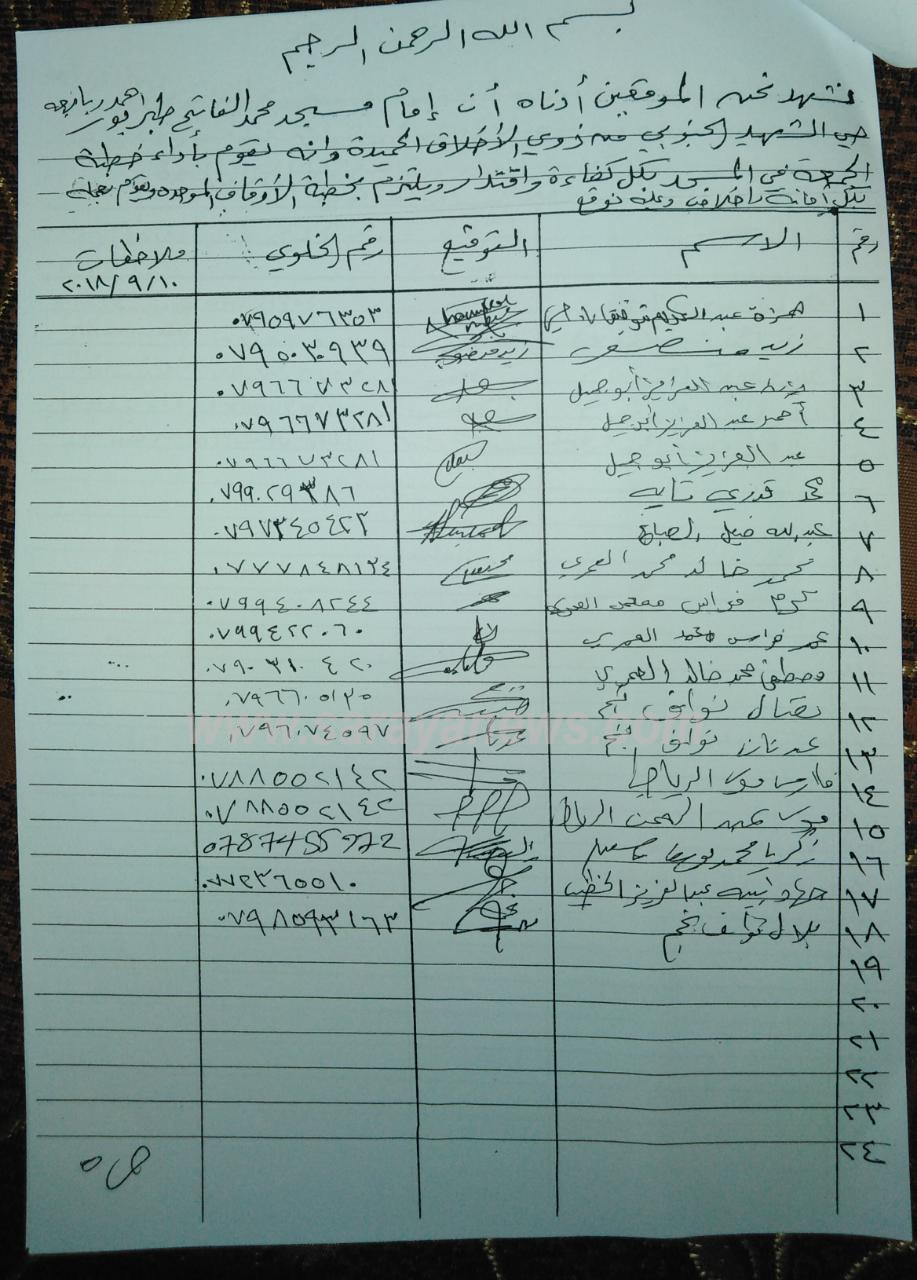 بسم الله الرحمن الرحيم
نشهد نحن الموقعين أدناه أن إمام مسجد محمد الفاتح طبربور احمد ربايعه
حي الشهيد الجنوبي من ذوي الأخلاق الحميدة وانه يقوم بأداء خطبة
الجمعة في المسجد بكل كفاءة واقتدار ويلتزم بخطة الأوقاف الموحده ويقوم بعمله
بكل أمانة وعليه نوقع
رقم الاسم التوقيع رقم الخلوي ملاحظات
٢٠١٨/٩/١٠
١ حمزة عبد الكريم ٠٧٩٥٩٧٦٣٥٣
٢ زيد منصور ٠٧٩٥٠٣٠٩٣٩
٣ عبد العزيز أبو جميل ٠٧٩٦٦٧٣٢٨١
٤ أحمد عبد العزيز أبو جميل ٠٧٩٦٦٧٣٢٨١
٥ عبد العزيز أبو جميل ٠٧٩٦٦٧٣٢٨١
٦ محمد قدري تايه ٠٧٩٩٠٢٩٣٨٦
٧ عبدالله الصباغ ٠٧٩٧٣٤٥٤٢٣
٨ محمد خالد محمد العمري ٠٧٧٧٨٤٨١٢٤
٩ كرم فراس محمد العمري ٠٧٩٩٤٠٨٢٤٤
١٠ عمر فراس محمد العمري ٠٧٩٩٤٢٢٠٦٠
١١ مصطفى محمد خالد العمري ٠٧٩٠٣١٠٤٢٠
١٢ نضال نجم ٠٧٩٦٦٠٥١٢٥
١٣ عدنان نجم ٠٧٩٦٠٧٤٥٩٧
١٤ فارس موسى الرياحي ٠٧٨٨٥٥٠٢١٤٢
١٥ موسى عبد الرحمن ٠٧٨٨٥٥٠٢١٤٢
١٦ زكريا محمد 0787455972
١٧ عبد العزيز الخطيب
١٨ بلال نجم ٠٧٩٨٥٩٣١٦٣
١٩
٢٠
٢١
٢٢
٢٣
٢٤
www.sarayanews.com